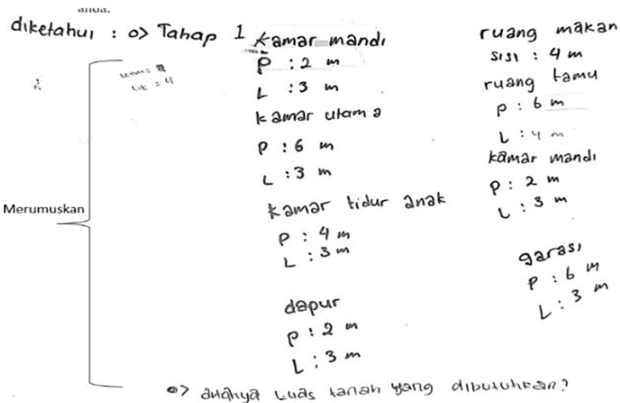 diketahui : => Tahap 1
kamar mandi
P : 2 m
L : 3 m
kamar utama
P : 6 m
L : 3 m
kamar tidur anak
P : 4 m
L : 3 m
dapur
P : 2 m
L : 3 m
ruang makan
sisi : 4 m
ruang tamu
P : 6 m
L : 4 m
kamar mandi
P : 2 m
L : 3 m
garasi
P : 6 m
L : 3 m
Merumuskan
=> luas tanah yang dibutuhkan?